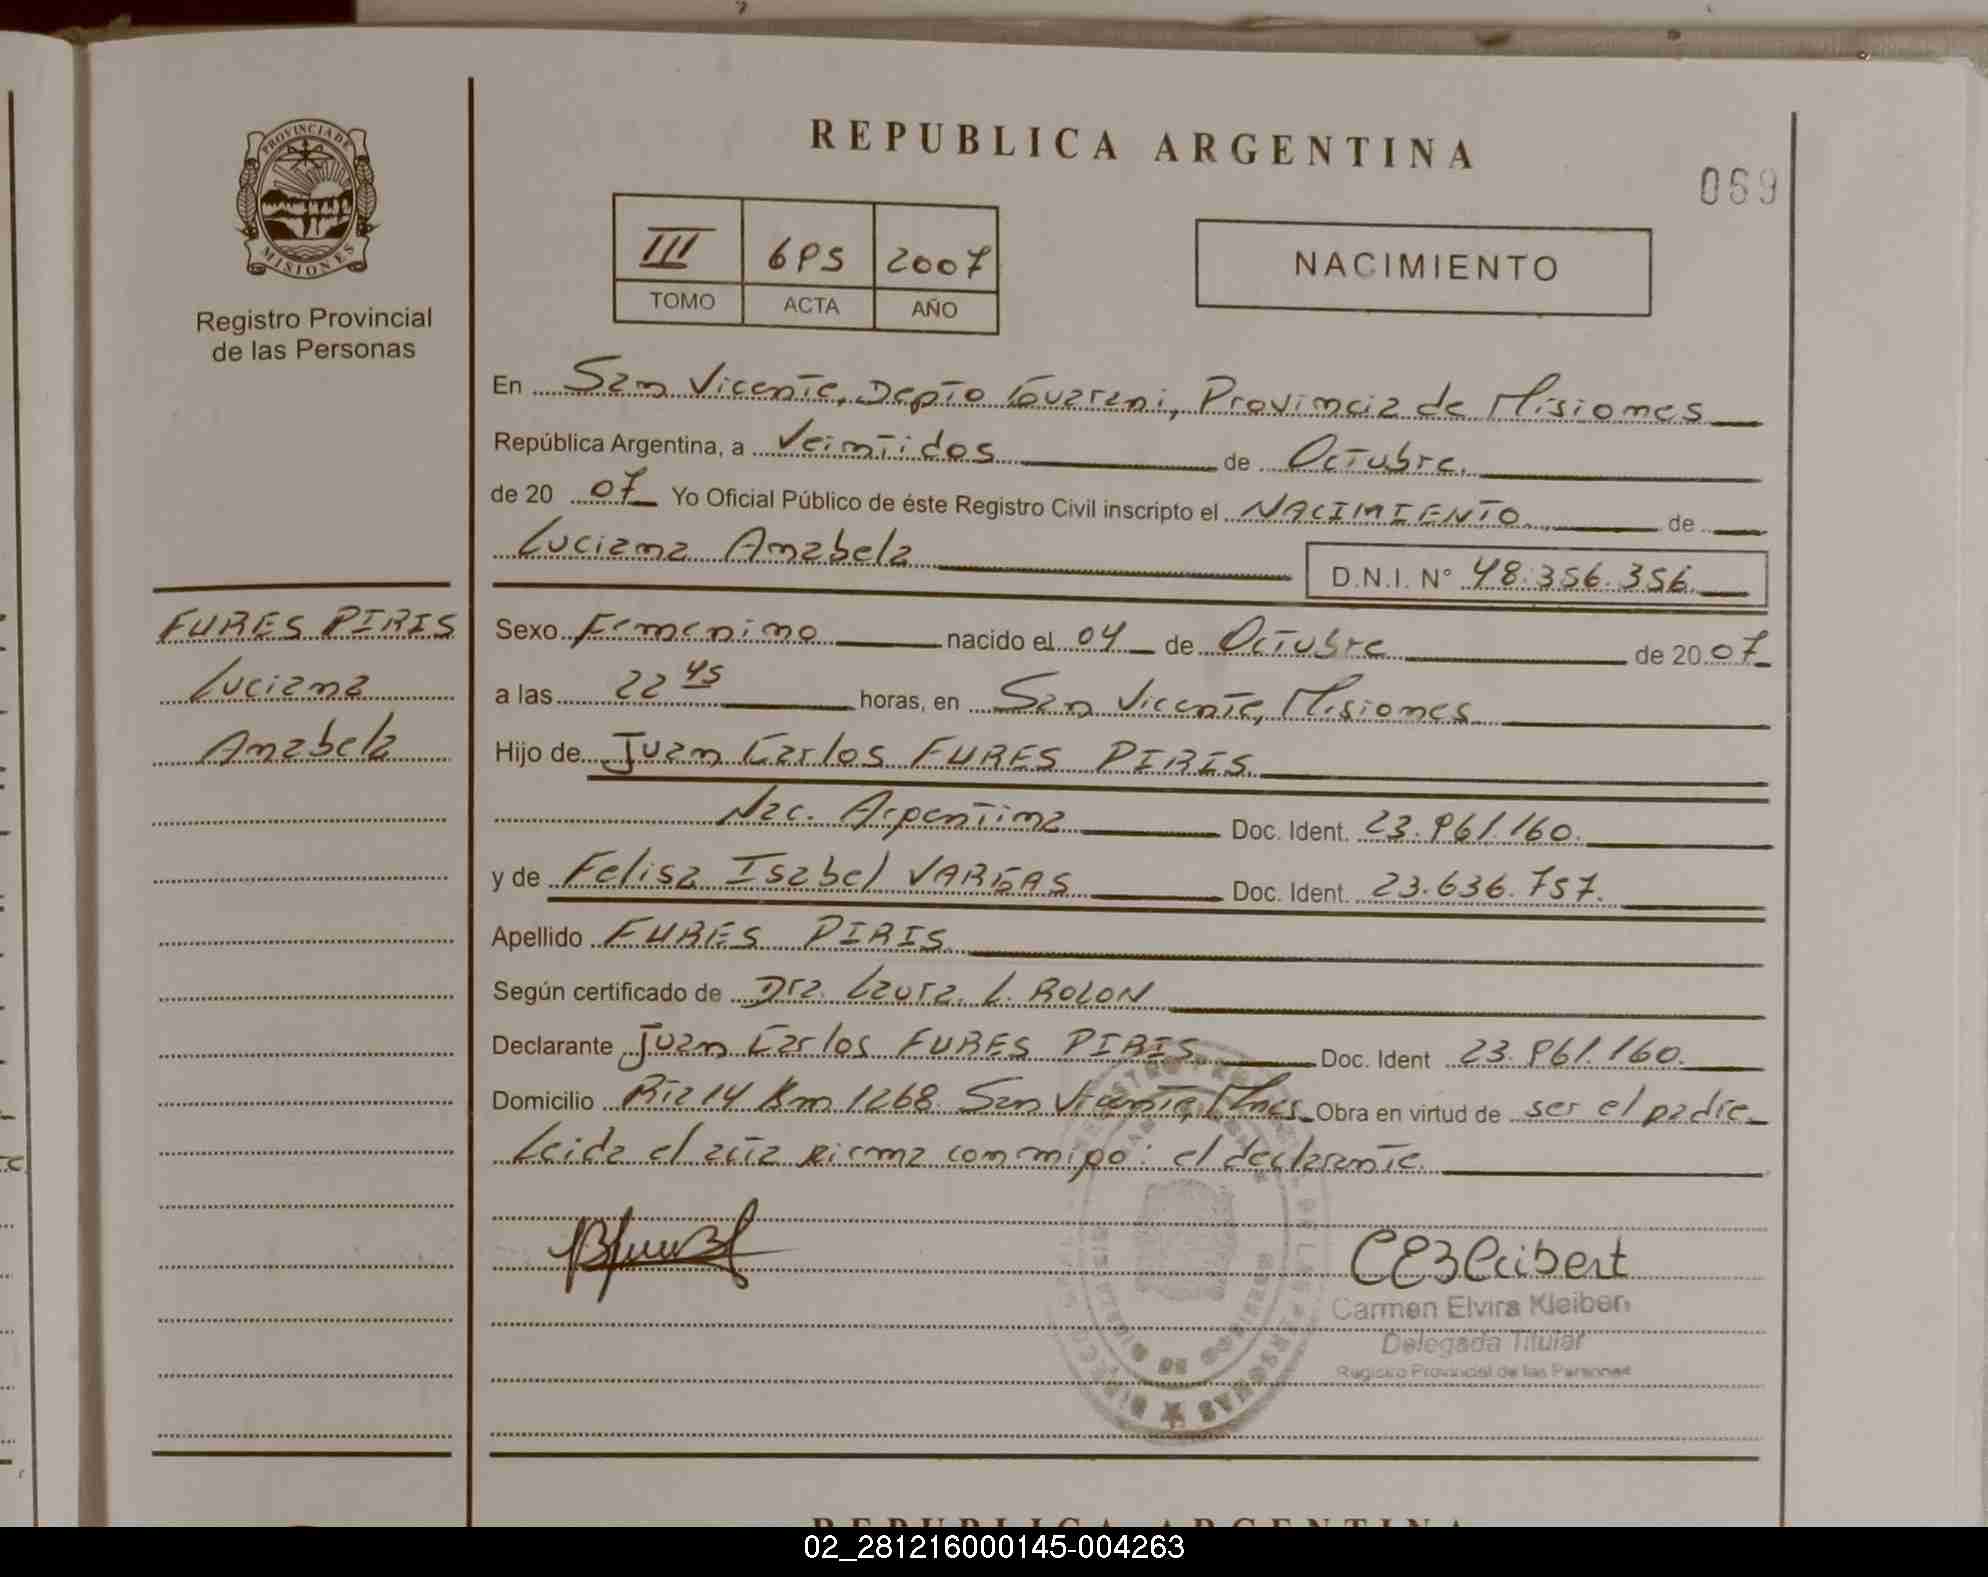 REPUBLICA ARGENTINA
069
PROVINCIA DE
MISIONES
Registro Provincial
de las Personas
III 695 2007
TOMO ACTA AÑO
NACIMIENTO
En San Vicente, Depto Guarani, Provincia de Misiones
República Argentina, a Veintidos de Octubre.
de 20 07 Yo Oficial Público de éste Registro Civil inscripto el NACIMIENTO de
Luciana Anabela D.N.I. N° 48.356.356
FURES PIRIS
Luciana
Anabela
Sexo Femenino nacido el 04 de Octubre de 20 07
a las 22 45 horas, en San Vicente, Misiones
Hijo de Juan Carlos FURES PIRIS
Nac. Argentina Doc. Ident. 23.961.160.
y de Felisa Isabel VARGAS Doc. Ident. 23.636.757.
Apellido FURES PIRIS
Según certificado de Dra. Laura L. ROLON
Declarante Juan Carlos FURES PIRIS Doc. Ident 23.961.160.
Domicilio Rta 14 Km 1268 San Vicente, Mnes Obra en virtud de ser el padre
Leida el acta firma conmigo: el declarante
CEKleibert
Carmen Elvira Kleibert
Delegada Titular
Registro Provincial de las Personas
REPUBLICA ARGENTINA
02_281216000145-004263